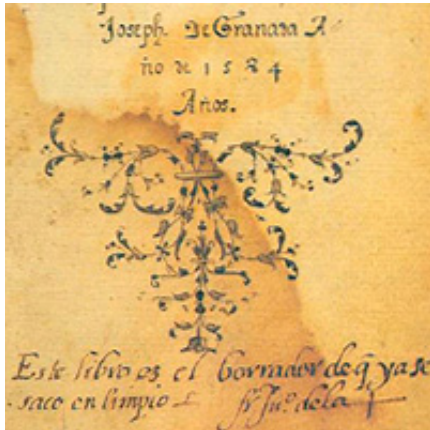 Joseph. De Granada A
ño de 1584
Años.
Este libro es el borrador de q̃ ya se
saco en limpio fr Juº. de la +